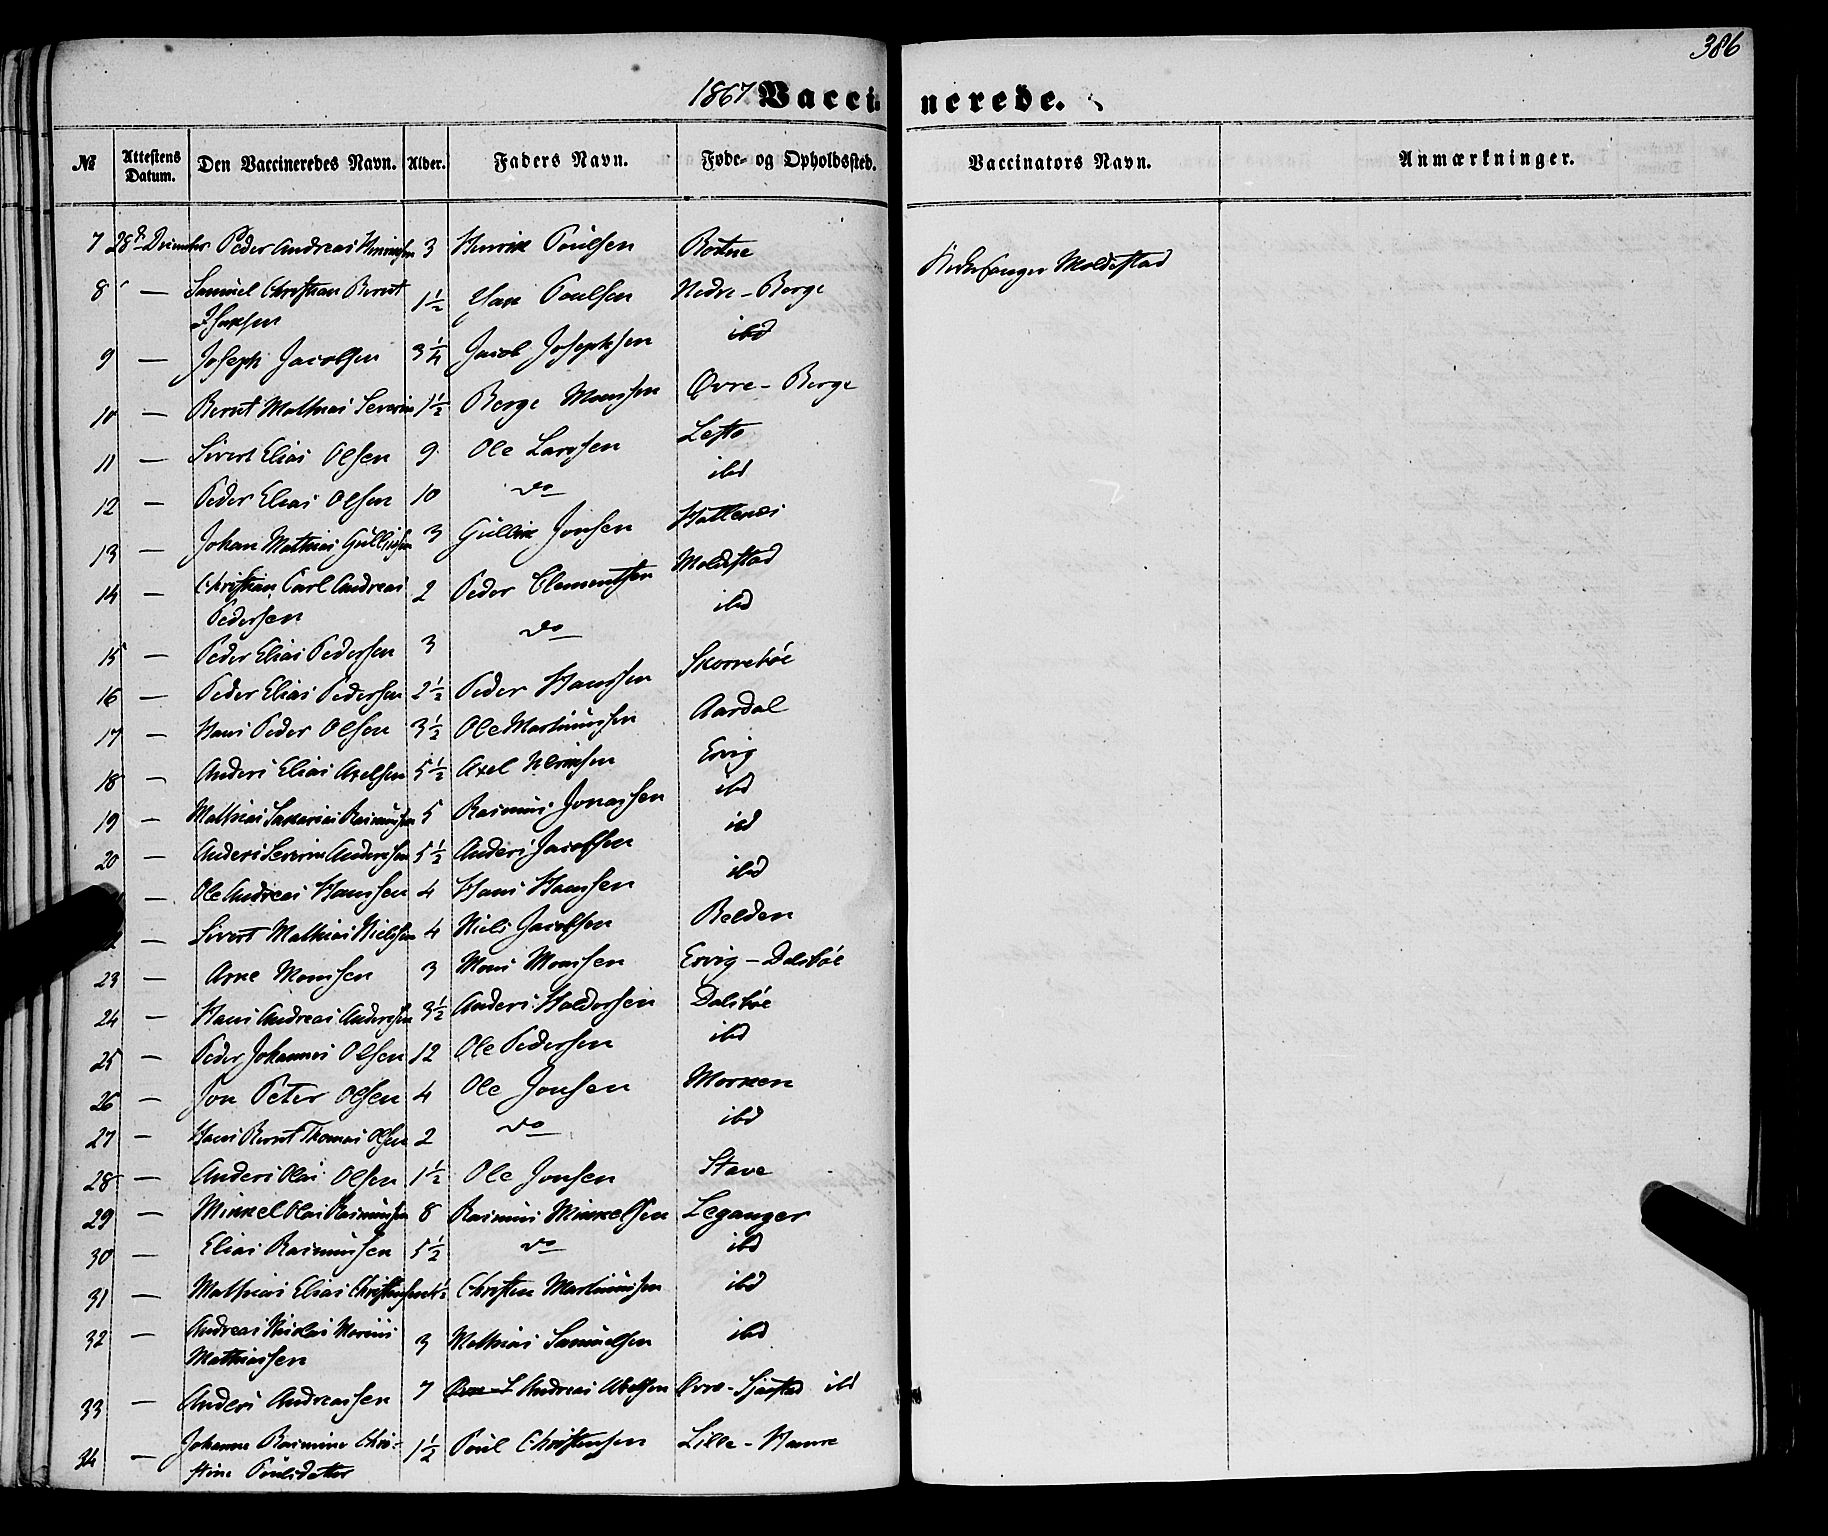 386
1867 Vaccinerede.
№ Attestens Datum. Den Vaccineredes Navn. Alder. Faders Navn. Føde- og Opholdssted. Vaccinators Navn. Anmærkninger.
7 28de December Peder Andreas Henriksen 3 Henrik Poulsen Bortne Moldestad
8 — Samuel Christian Bernt 1½ Isak Poulsen Nedre-Berge
Isaksen
9 — Joseph Jacobsen 3¼ Jacob Josephsen ibd
10 — Bernt Mathias Severin 1½ Berge Monssen Øvre-Berge
11 — Sivert Elias Olsen 9 Ole Larssen Lefto
12 — Peder Elias Olsen 10 do ibd
13 — Johan Mathias Gulliksen 3 Gullik Jonsen Hattenæs
14 — Christian Carl Andreas 2 Peder Clementsen Moldestad
Pedersen
15 — Peder Elias Pedersen 3 do ibd
16 — Peder Elias Pedersen 2½ Peder Hanssen Skorrebøe
17 — Hans Peder Olsen 3½ Ole Martinussen Aardal
18 — Anders Elias Axelsen 5½ Axel Ulriksen Ervig
19 — Mathias Sakarias Rasmussen 5 Rasmus Jonassen ibd
20 — Anders Severin Anderssen 5½ Anders Jacobsen ibd
— Ole Andreas Hanssen 4 Hans Hanssen ibd
— Sivert Mathias Nielssen 4 Niels Jacobsen Belden
23 — Arne Monssen 3 Mons Monssen Ervig-Dalsbøe
24 — Hans Andreas Anderssen 3½ Anders Haldorsen Dalsbøe
25 — Peder Johannes Olsen 12 Ole Pedersen ibd
26 — Jon Peter Olsen 4 Ole Jonsen Morken
27 — Hans Bernt Thomas Olsen 2 do ibd
28 — Anders Olai Olsen 1½ Ole Jonsen Stave
29 — Mikkel Olai Rasmussen 8 Rasmus Mikkelsen Leganger
30 — Elias Rasmussen 5½ do ibd
31 — Mathias Elias Christensen Christen Martinussen ibd
32 — Andreas Nicolai Marius 3 Mathias Samuelsen ibd
Mathiassen
33 — Anders Andreassen 7 Andreas Abelsen ibd
34 — Johanne Rasmine Chri- 1½ Poul Christensen Lille-Hamre
stine Poulsdatter